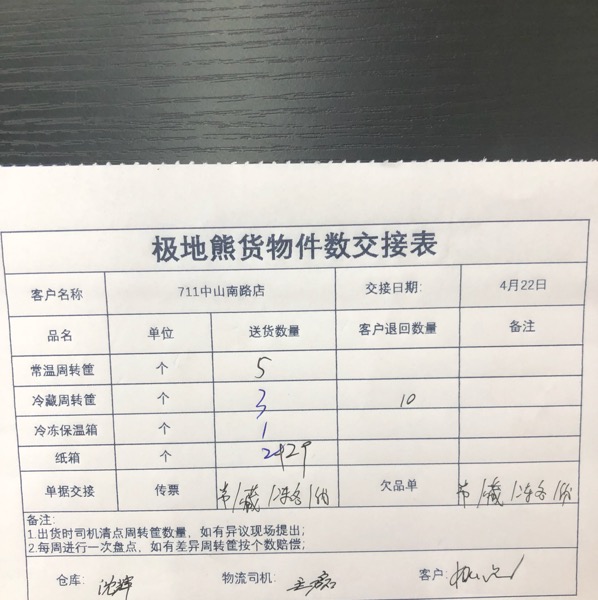 极地熊货物件数交接表
客户名称 711中山南路店 交接日期: 4月22日
品名 单位 送货数量 客户退回数量 备注
常温周转筐 个 5
冷藏周转筐 个 3 10
冷冻保温箱 个 1
纸箱 个
单据交接 传票 常/藏/冻各1份 欠品单 常/藏/冻各1份
备注:
1.出货时司机清点周转筐数量，如有异议现场提出;
2.每周进行一次盘点，如有差异周转筐按个数赔偿;
仓库: 物流司机: 客户: